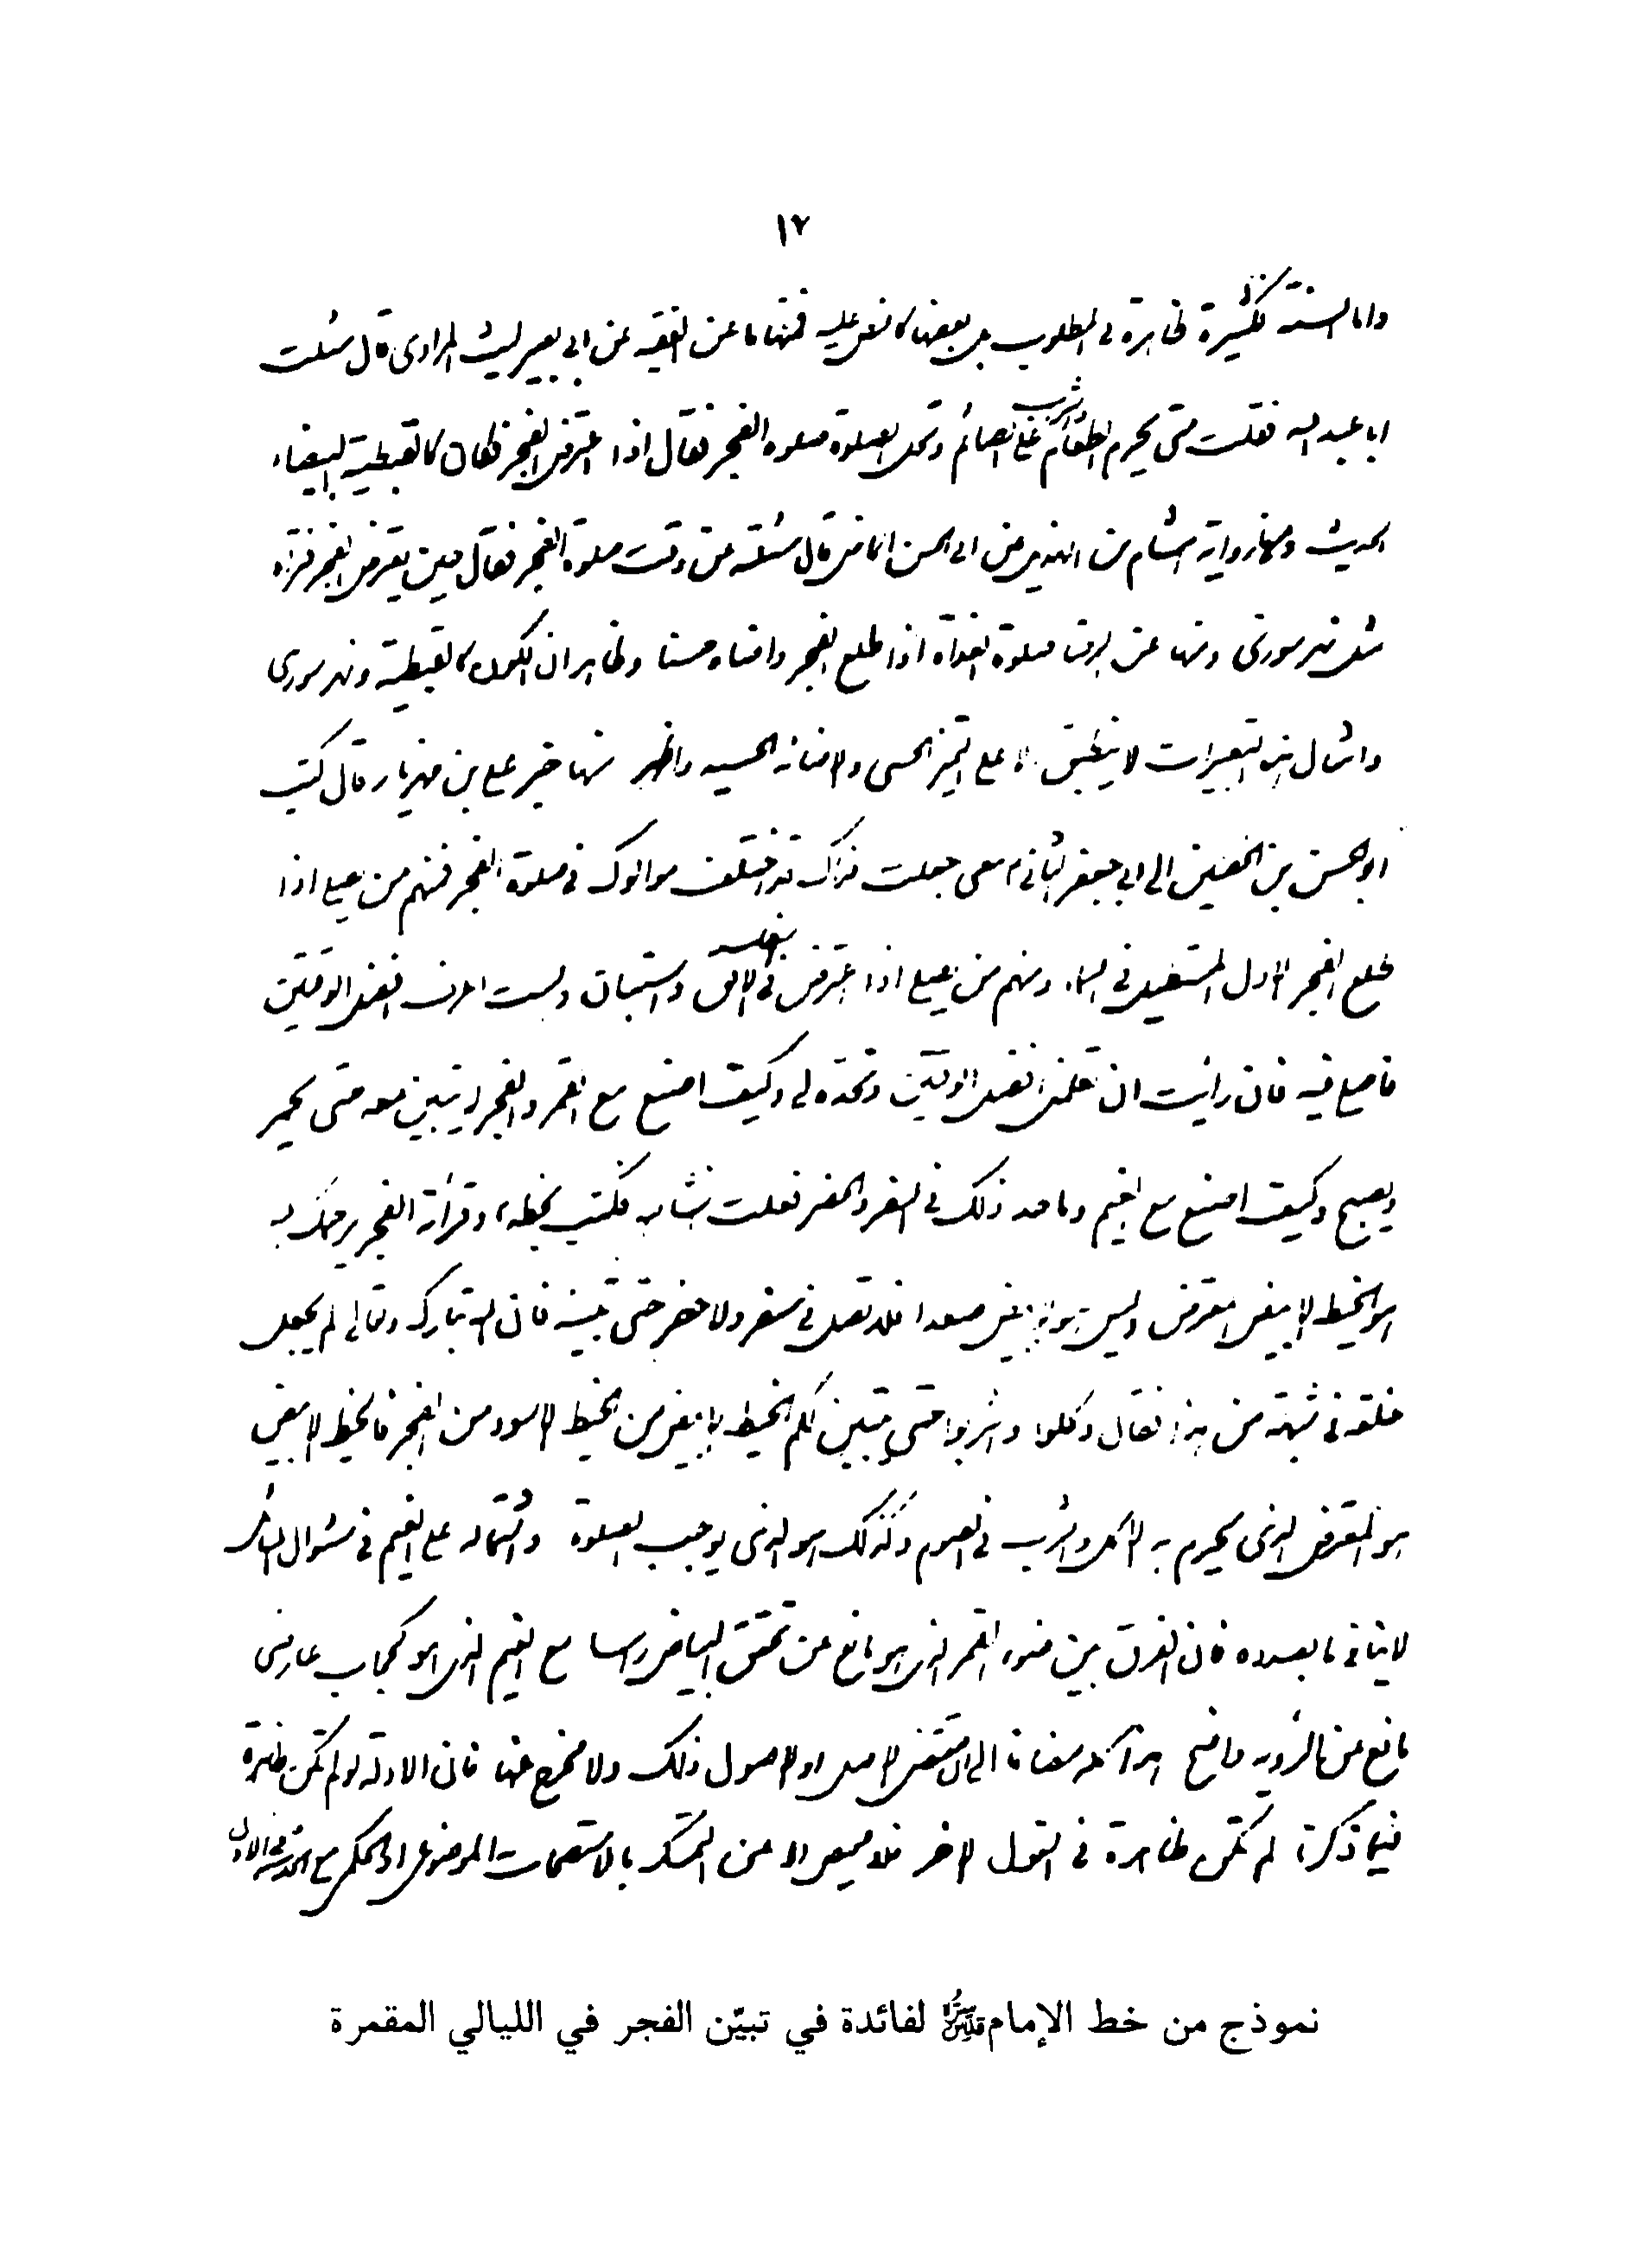 ١٢
واما السنة فكثيرة ظاهرة في المطلوب بل بعضها كالنص عليه فمنها ما عن الفقيه عن ابي بصير ليث المرادي قال سئلت
ابا عبد الله فقلت متى يحرم الطعام والشراب على الصائم وتحل الصلوة صلوة الفجر فقال اذا اعترض الفجر فكان كالقبطية البيضاء
الحديث ومنها رواية هشام بن الهذيل عن ابي الحسن الماضي قال سئلته عن وقت صلوة الفجر فقال حين يعترض الفجر فتراه
مثل نهر سورى ومنها عن الرضا صلوة الغداة اذا طلع الفجر واضاء حسنا وظاهر ان الكون كالقبطية ونهر سورى
وامثال هذه التعبيرات لا ينطبق الا على التميز الحسى والاضائة الحسية واظهر منها خبر على بن مهزيار قال كتب
ابو الحسن بن الحصين الى ابي جعفر الثاني معى جعلت فداك قد اختلف موالوك في صلوة الفجر فمنهم من يصلى اذا
طلع الفجر الاول المستطيل في السماء ومنهم من يصلى اذا اعترض في اسفل الافق واستبان ولست اعرف افضل الوقتين
فاصلى فيه فان رأيت ان تعلمنى افضل الوقتين وتحده لى وكيف اصنع مع القمر والفجر لا يتبين معه حتى يحمر
ويصبح وكيف اصنع مع الغيم وما حد ذلك في السفر والحضر فعلت انشاء الله فكتب بخطه وقرأته الفجر يرحمك الله
هو الخيط الابيض المعترض وليس هو الابيض صعدا فلا تصل في سفر ولا حضر حتى تبينه فان الله تبارك وتعالى لم يجعل
خلقه في شبهة من هذا فقال وكلوا واشربوا حتى يتبين لكم الخيط الابيض من الخيط الاسود من الفجر فالخيط الابيض
هو المعترض الذى يحرم به الاكل والشرب في الصوم وكذلك هو الذى يوجب الصلوة واشتماله على الغيم في سئوال السائل
لا ينافى ما بصدده فان الفرق بين ضوء القمر الذى هو مانع عن تحقق البياض رأسا مع الغيم الذى هو كحجاب عارضى
مانع عن الرؤية واضح هذا كله مضافا الى ان مقتضى الاصل او الاصول ذلك ولا مخرج عنها فان الادلة لو لم تكن ظاهرة
فيما ذكرنا لم تكن ظاهرة في القول الاخر فلا محيص الا من التمسك بالاستصحاب الموضوعى او الحكمى مع
نموذج من خط الإمام قدس سره لفائدة في تبيّن الفجر في الليالي المقمرة